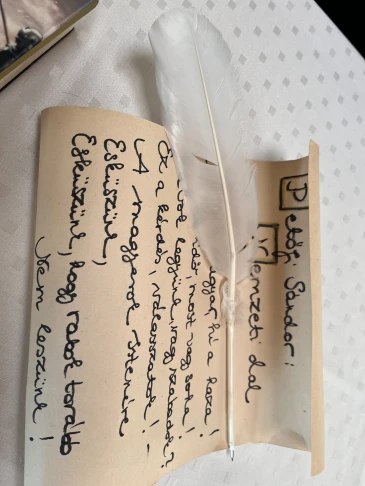 Petőfi Sándor:
Nemzeti dal
magyar, hí a haza!
idő, most vagy soha!
legyünk, vagy szabadok?
Ez a kérdés, válasszatok! -
A magyarok Istenére
Esküszünk,
Esküszünk, hogy rabok tovább
Nem leszünk!